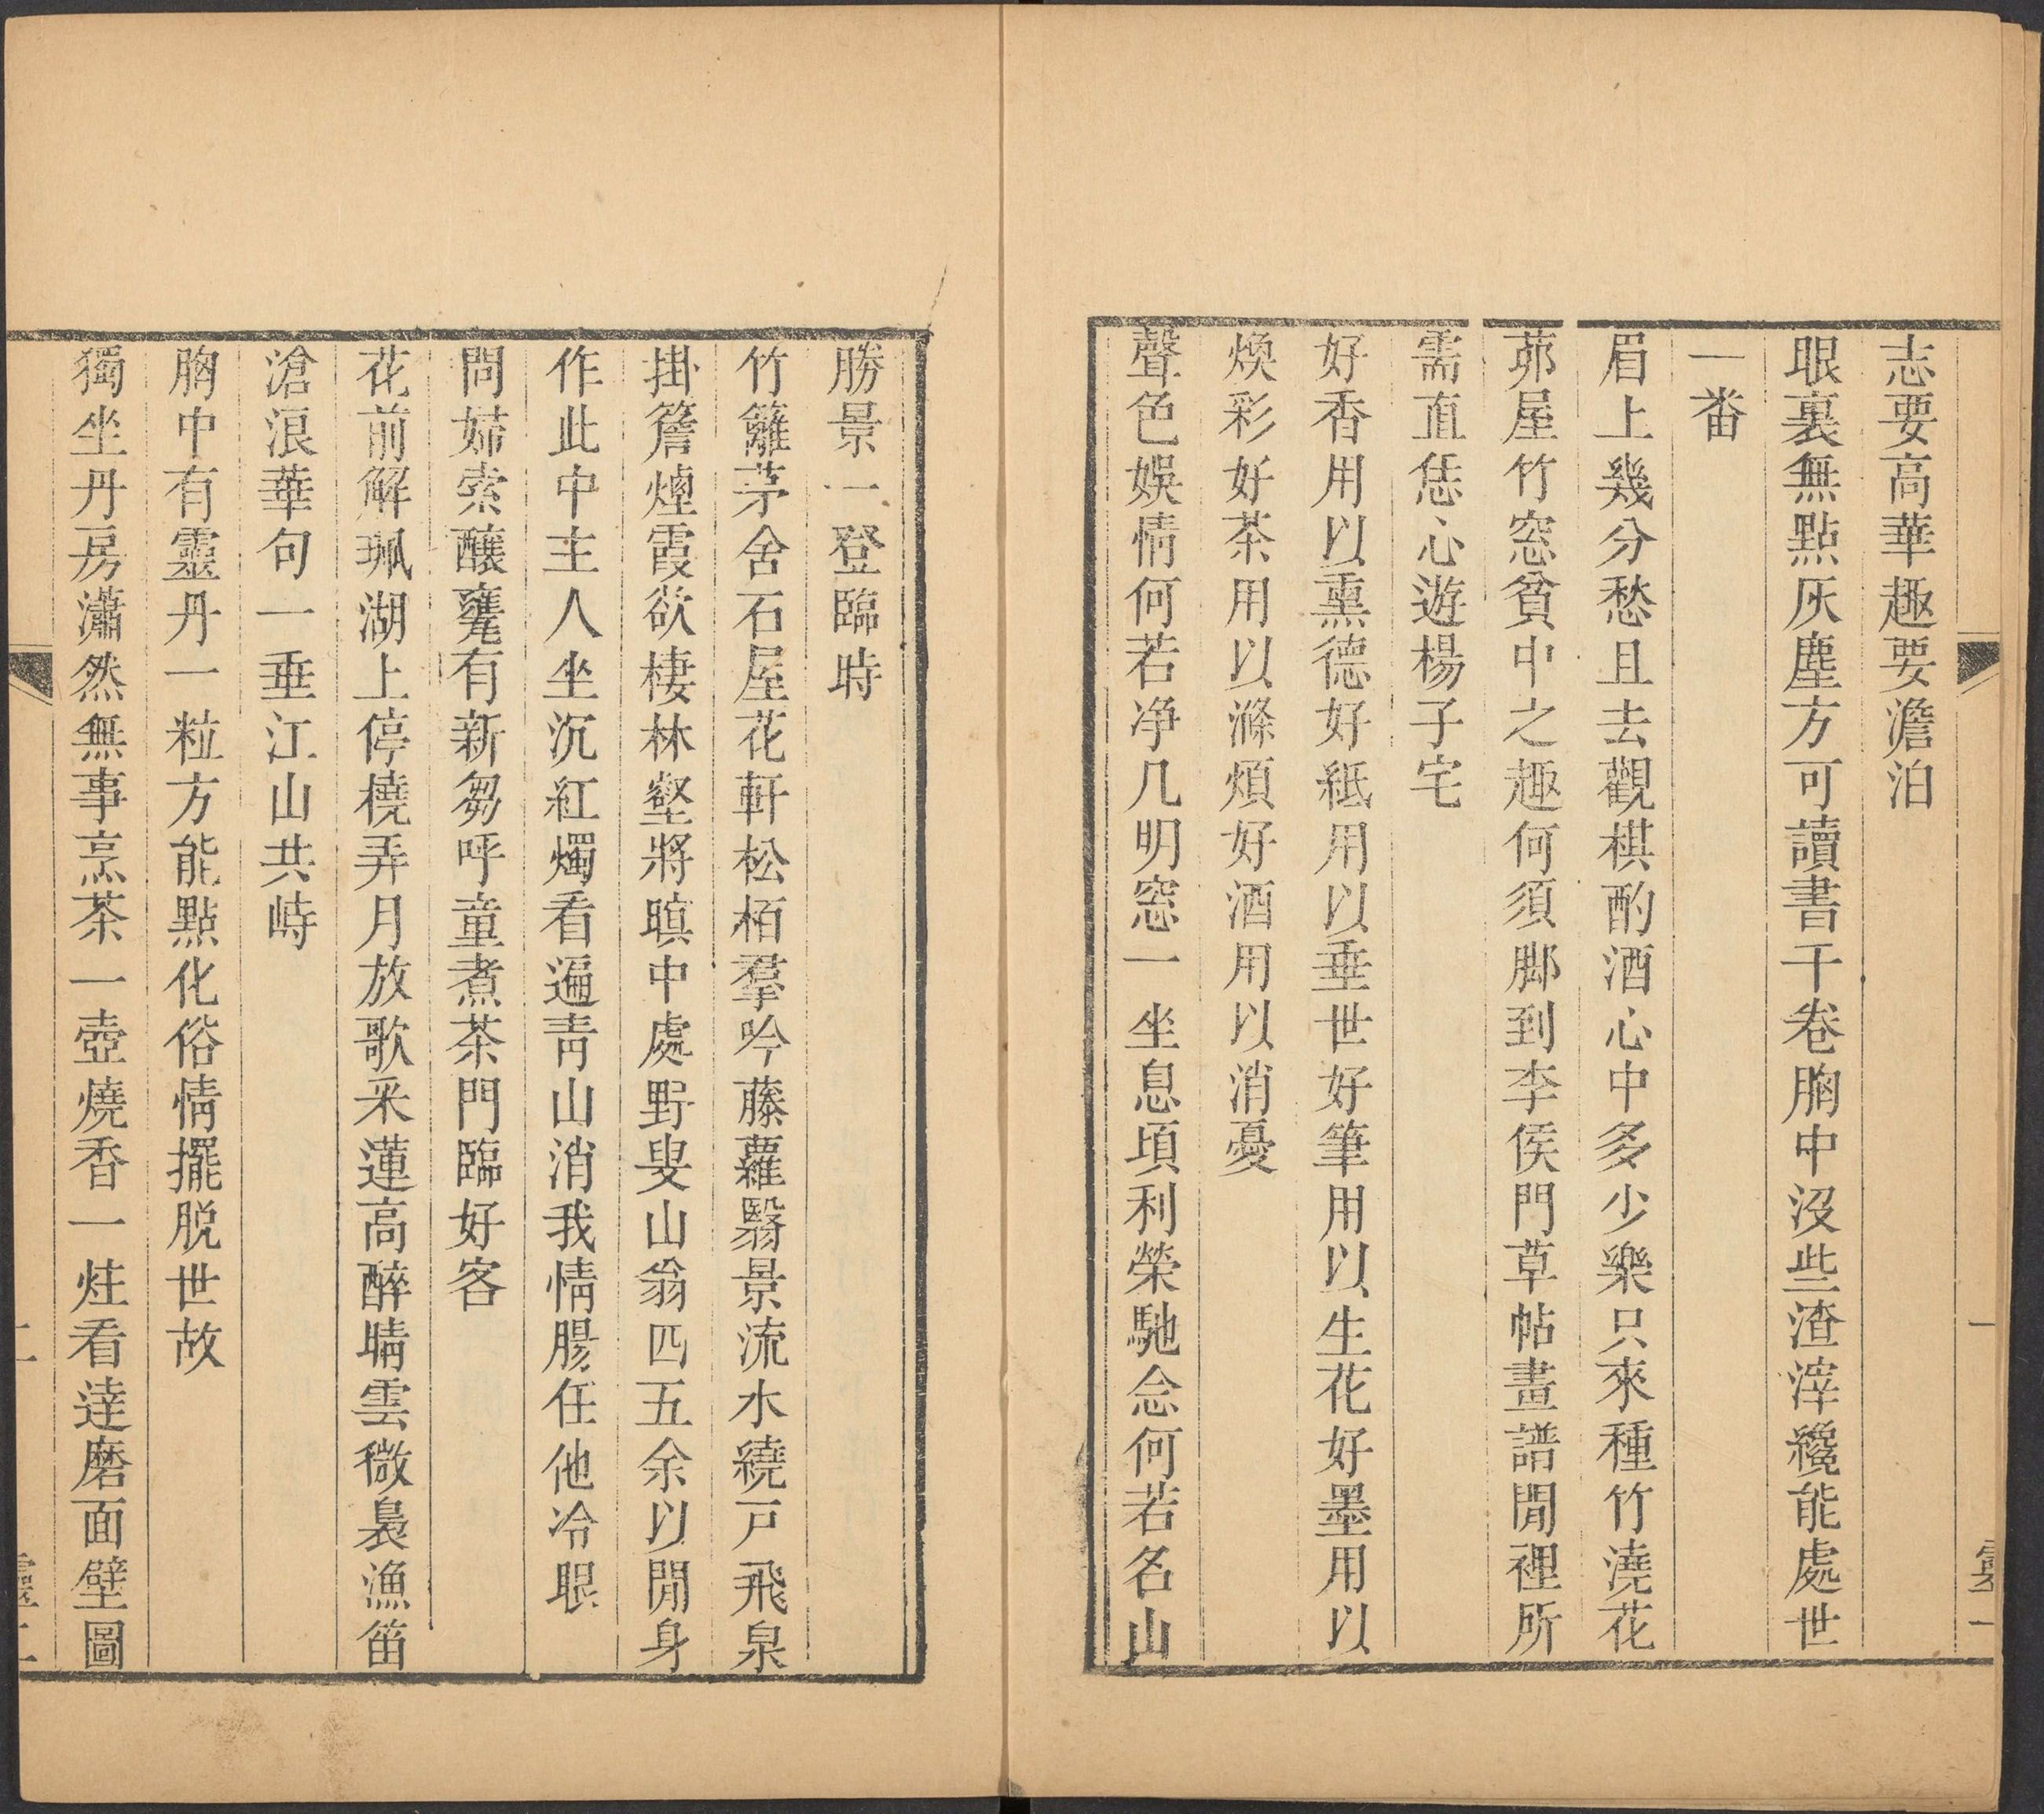 志要高華趣要澹泊
眼裏無點灰塵方可讀書千卷胸中沒些渣滓纔能處世
一番
眉上幾分愁且去觀棋酌酒心中多少樂只來種竹澆花
茆屋竹窓貧中之趣何須脚到李侯門草帖畫譜閒裡所
需直恁心遊楊子宅
好香用以熏德好紙用以垂世好筆用以生花好墨用以
煥彩好茶用以滌煩好酒用以消憂
聲色娛情何若净几明窓一坐息頃利榮馳念何若名山
勝景一登臨時
竹籬茅舍石屋花軒松栢羣吟藤蘿翳景流水繞戸飛泉
掛簷煙霞欲棲林壑將暝中處野叟山翁四五余以閒身
作此中主人坐沉紅燭看遍青山消我情腸任他冷眼
問婦索釀甕有新芻呼童煮茶門臨好客
花前解珮湖上停橈弄月放歌采蓮高醉晴雲微裊漁笛
滄浪華句一垂江山共峙
胸中有靈丹一粒方能點化俗情擺脱世故
獨坐丹房瀟然無事烹茶一壺燒香一炷看逹磨面壁圖